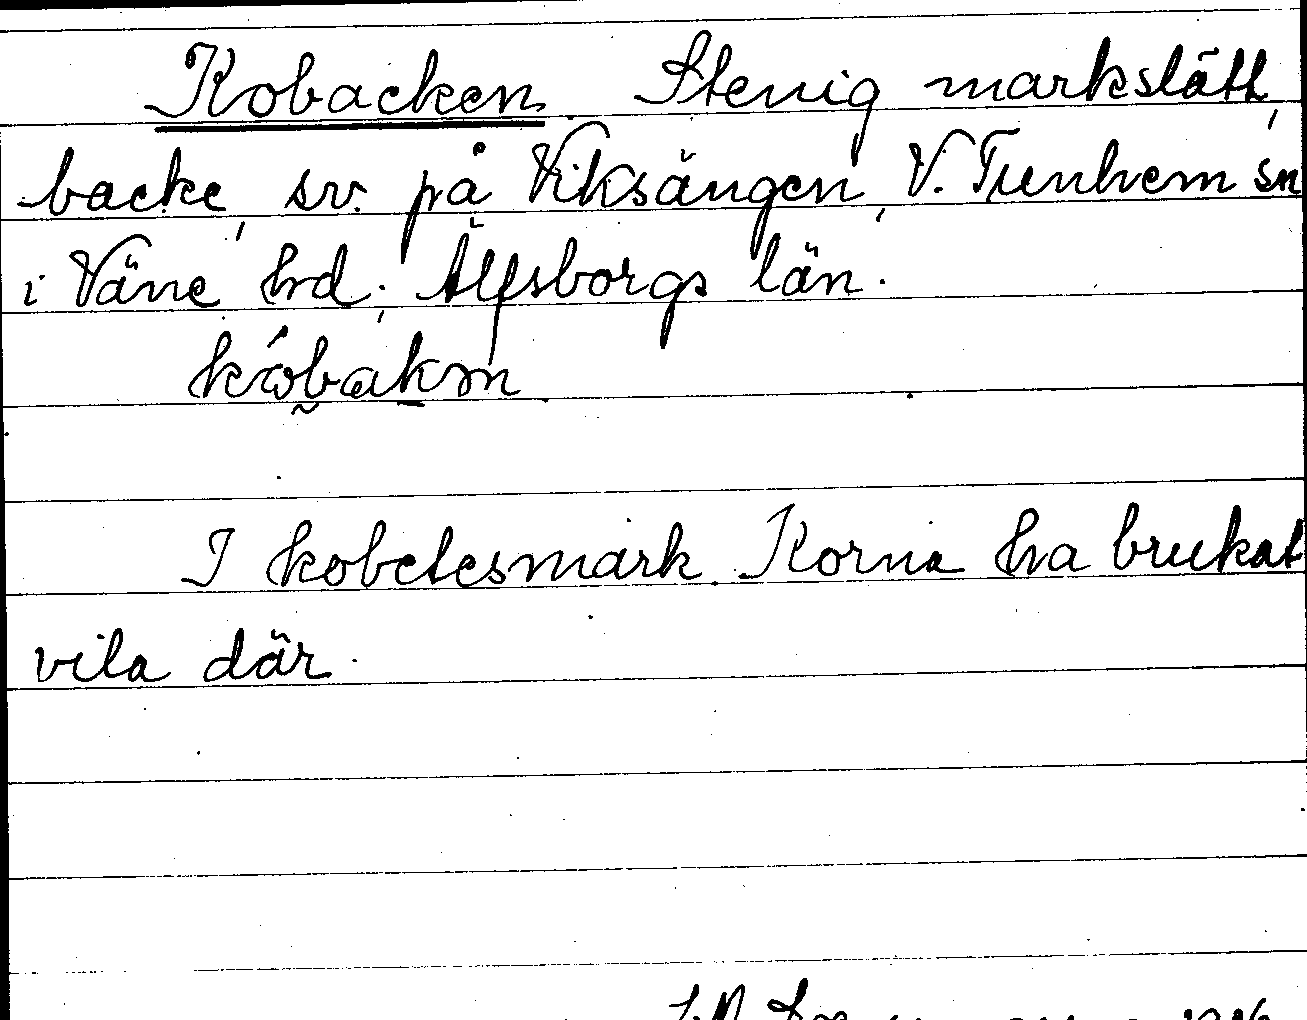 Kobacken Stenig markslätt,
backe, sv. på Viksängen, V. Tunhem sn
i Väne hd, Älfsborgs län.
I kobetesmark. Korna ha brukat
vila där.